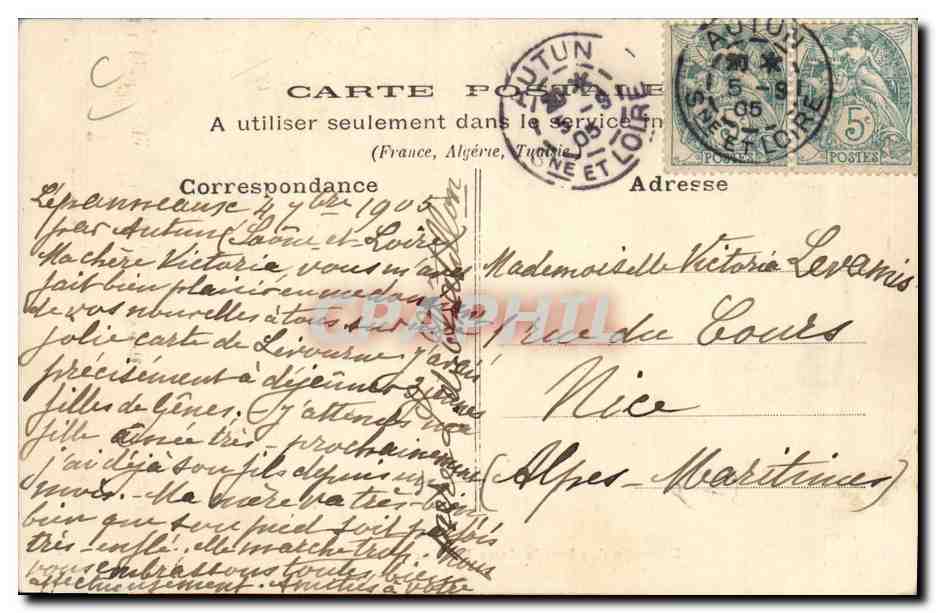 CARTE POSTALE
A utiliser seulement dans le service in
(France, Algérie, Tunisie)
Correspondance
4 7bre 1905
par Autun (Saône et Loire
Ma chère Victoria, vous m'avez
fait bien plaisir en me
de vos nouvelles à tous sur
jolie carte de Livourne j'avais
précisément à déjeuner 2 jeunes
filles de Gênes. J'attends ma
fille aînée très-prochainement
j'ai déjà son fils depuis un
mois. Ma mère va très-bien
bien que son pied soit parfois
très-enflé. elle marche trop. Nous
vous embrassons toutes bien
affectueusement. Amitiés à votre
Adresse
Mademoiselle Victoria Levamis
1 rue du Cours
Nice
(Alpes-Maritimes)
AUTUN
5 -9
05
SNE ET LOIRE
AUTUN
5 -9
05
SNE ET LOIRE
POSTES
5c
POSTES
CPAPHIL